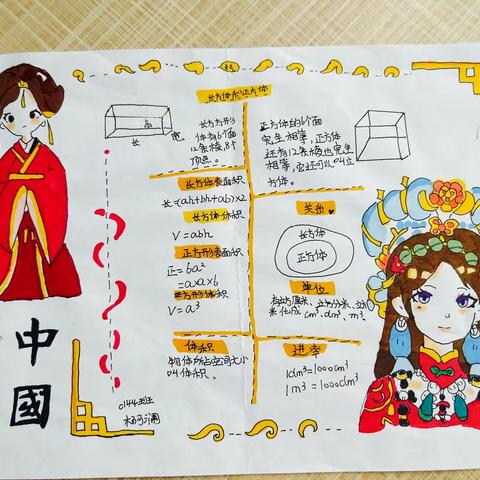 长方体和正方体
长方方形
体有6个面
12条棱,8个
顶点。
高
长
宽
正方体的6个面
完全相等,正方体
还有12条棱也完全
相等,它还可以叫立
方体。
长方体表面积
长=(ah+bh+ab)×2
长方体体积
V=abh
正方形表面积
正=6a²
=a×a×6
正方形体积
V=a³
体积
物体所占空间大小
叫体积。
关系
长方体
正方体
单位
有立方厘米、立方分米、立方
米化成cm³、dm³、m³.
进率
1dm³=1000cm³
1m³=1000dm³
中
國
0144班